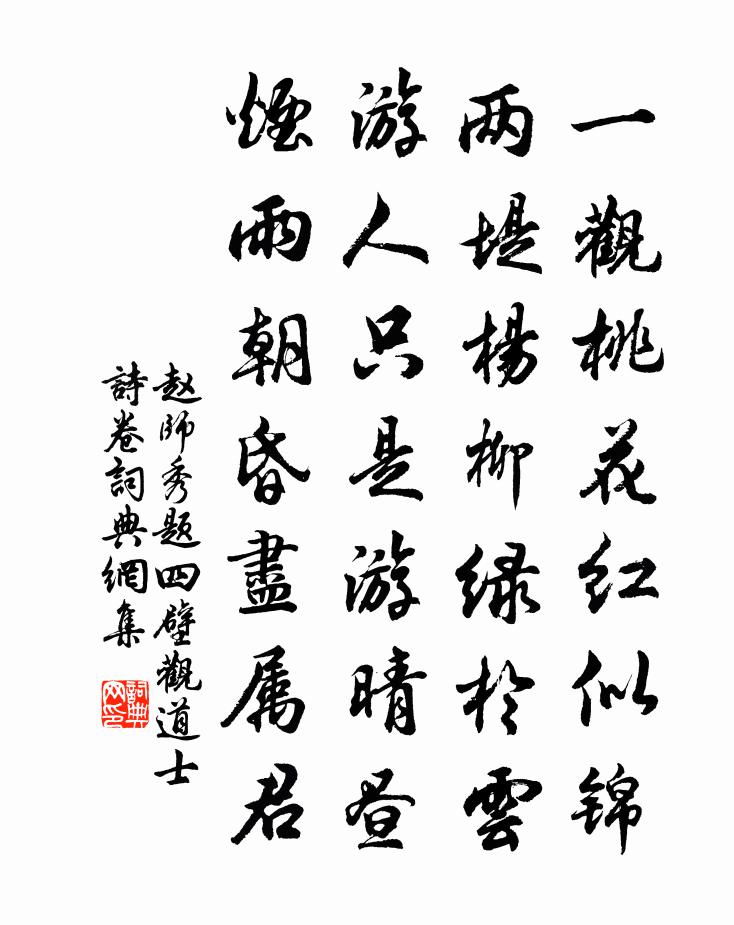 一觀桃花红似锦
两堤楊柳绿於雲
游人只是游晴昼
煙雨朝昏盡属君
赵師秀题四壁觀道士
詩卷詞典網集
詞典网印